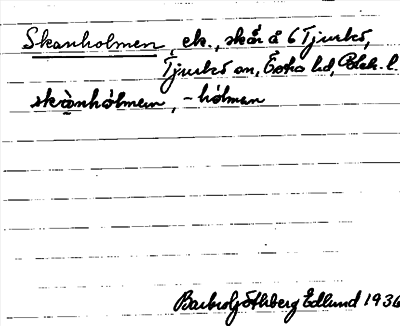 Skanholmen, ek., skär å 6 Tjurkö,
Tjurkö sn, Östra hd, Blek. l.
skànhól̀men, -hólmen
Göthberg Edlund 1936